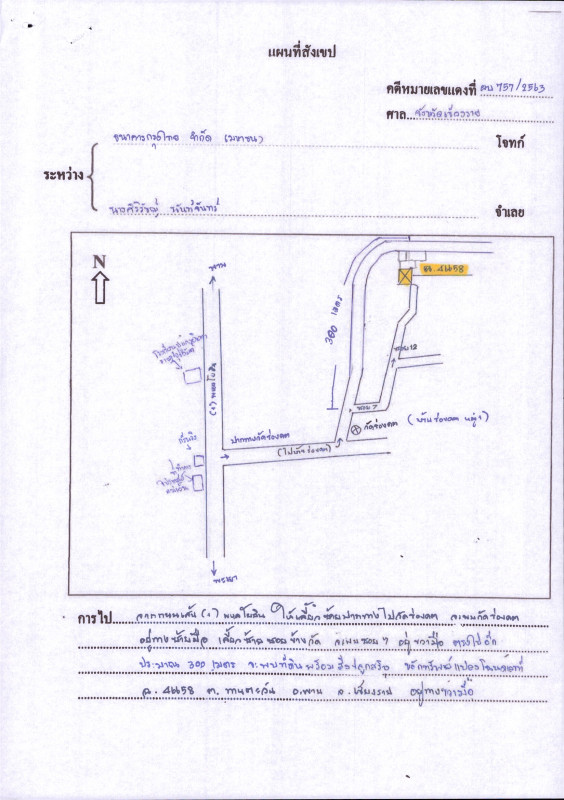 แผนที่สังเขป
คดีหมายเลขแดงที่ ผบ 757/2563
ศาล จังหวัดเชียงราย
ธนาคารกรุงไทย จำกัด (มหาชน) โจทก์
ระหว่าง
นางศิริวิชญ์ จันทร์ จำเลย
N
พาน
(1) พหลโยธิน
360 เมตร
ฉ. 46658
ซอย 12
ซอย 7
วัดร่องคต (บ้านร่องคต หมู่ 1)
ปากทางวัดร่องคต
(ไปบ้านร่องคต)
พะเยา
การไป จากถนนเส้น (1) พหลโยธิน ให้เลี้ยวซ้ายปากทางไปวัดร่องคต จะพบวัดร่องคต
อยู่ทางซ้ายมือ เลี้ยวซ้ายซอยข้างวัด จะพบซอย 7 อยู่ขวามือ ตรงไปอีก
ประมาณ 300 เมตร จะพบที่ดินพร้อมสิ่งปลูกสร้าง ทรัพย์แปลงโฉนดเลขที่
ฉ. 46658 ต. อ.พาน จ.เชียงราย อยู่ทางขวามือ